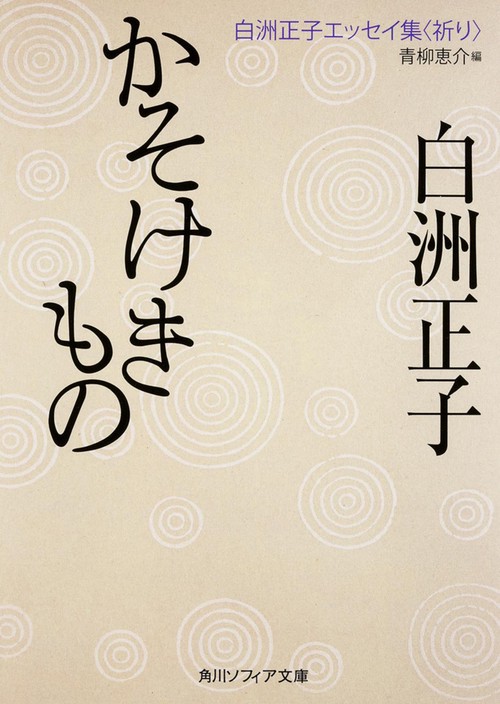 白洲正子エッセイ集〈祈り〉
青柳恵介 編
白洲正子
かそけき
もの
角川ソフィア文庫